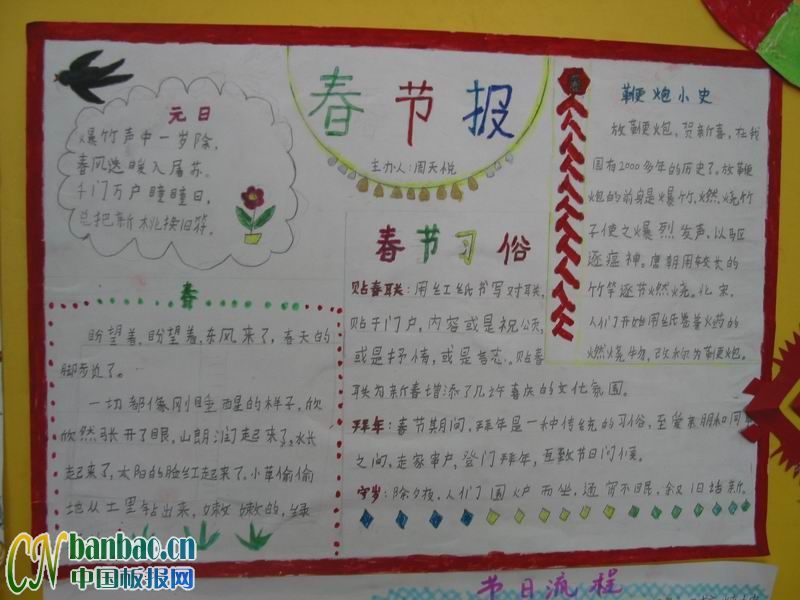 春节报
主办人:周天悦
元日
爆竹声中一岁除,
春风送暖入屠苏.
千门万户瞳瞳日,
总把新桃换旧符.
春
盼望着,盼望着,东风来了,春天的
脚步近了。
一切都像刚睡醒的样子,欣
欣然张开了眼.山朗润起来了,水长
起来了,太阳的脸红起来了。小草偷偷
地从土里钻出来,嫩嫩的,绿
春节习俗
贴春联:用红纸书写对联,
贴于门户,内容或是祝颂,
或是抒情,或是言志.贴春
联为新春增添了几许喜庆的文化氛围。
拜年:春节期间,拜年是一种传统的习俗,至爱亲朋和同
之间,走家串户,登门拜年,互致节日问候。
守岁:除夕夜,人们围炉而坐,通宵不眠,叙旧话新.
鞭炮小史
放鞭炮,贺新喜,在我
国有2000多年的历史了。放鞭
炮的前身是爆竹,燃烧竹
子使之爆烈发声,以驱
逐瘟神。唐朝用较长的
竹竿逐节燃烧。北宋,
人们开始用纸卷着火药的
燃烧物,改称为鞭炮。
节日流程
CN banbao.cn
中国板报网